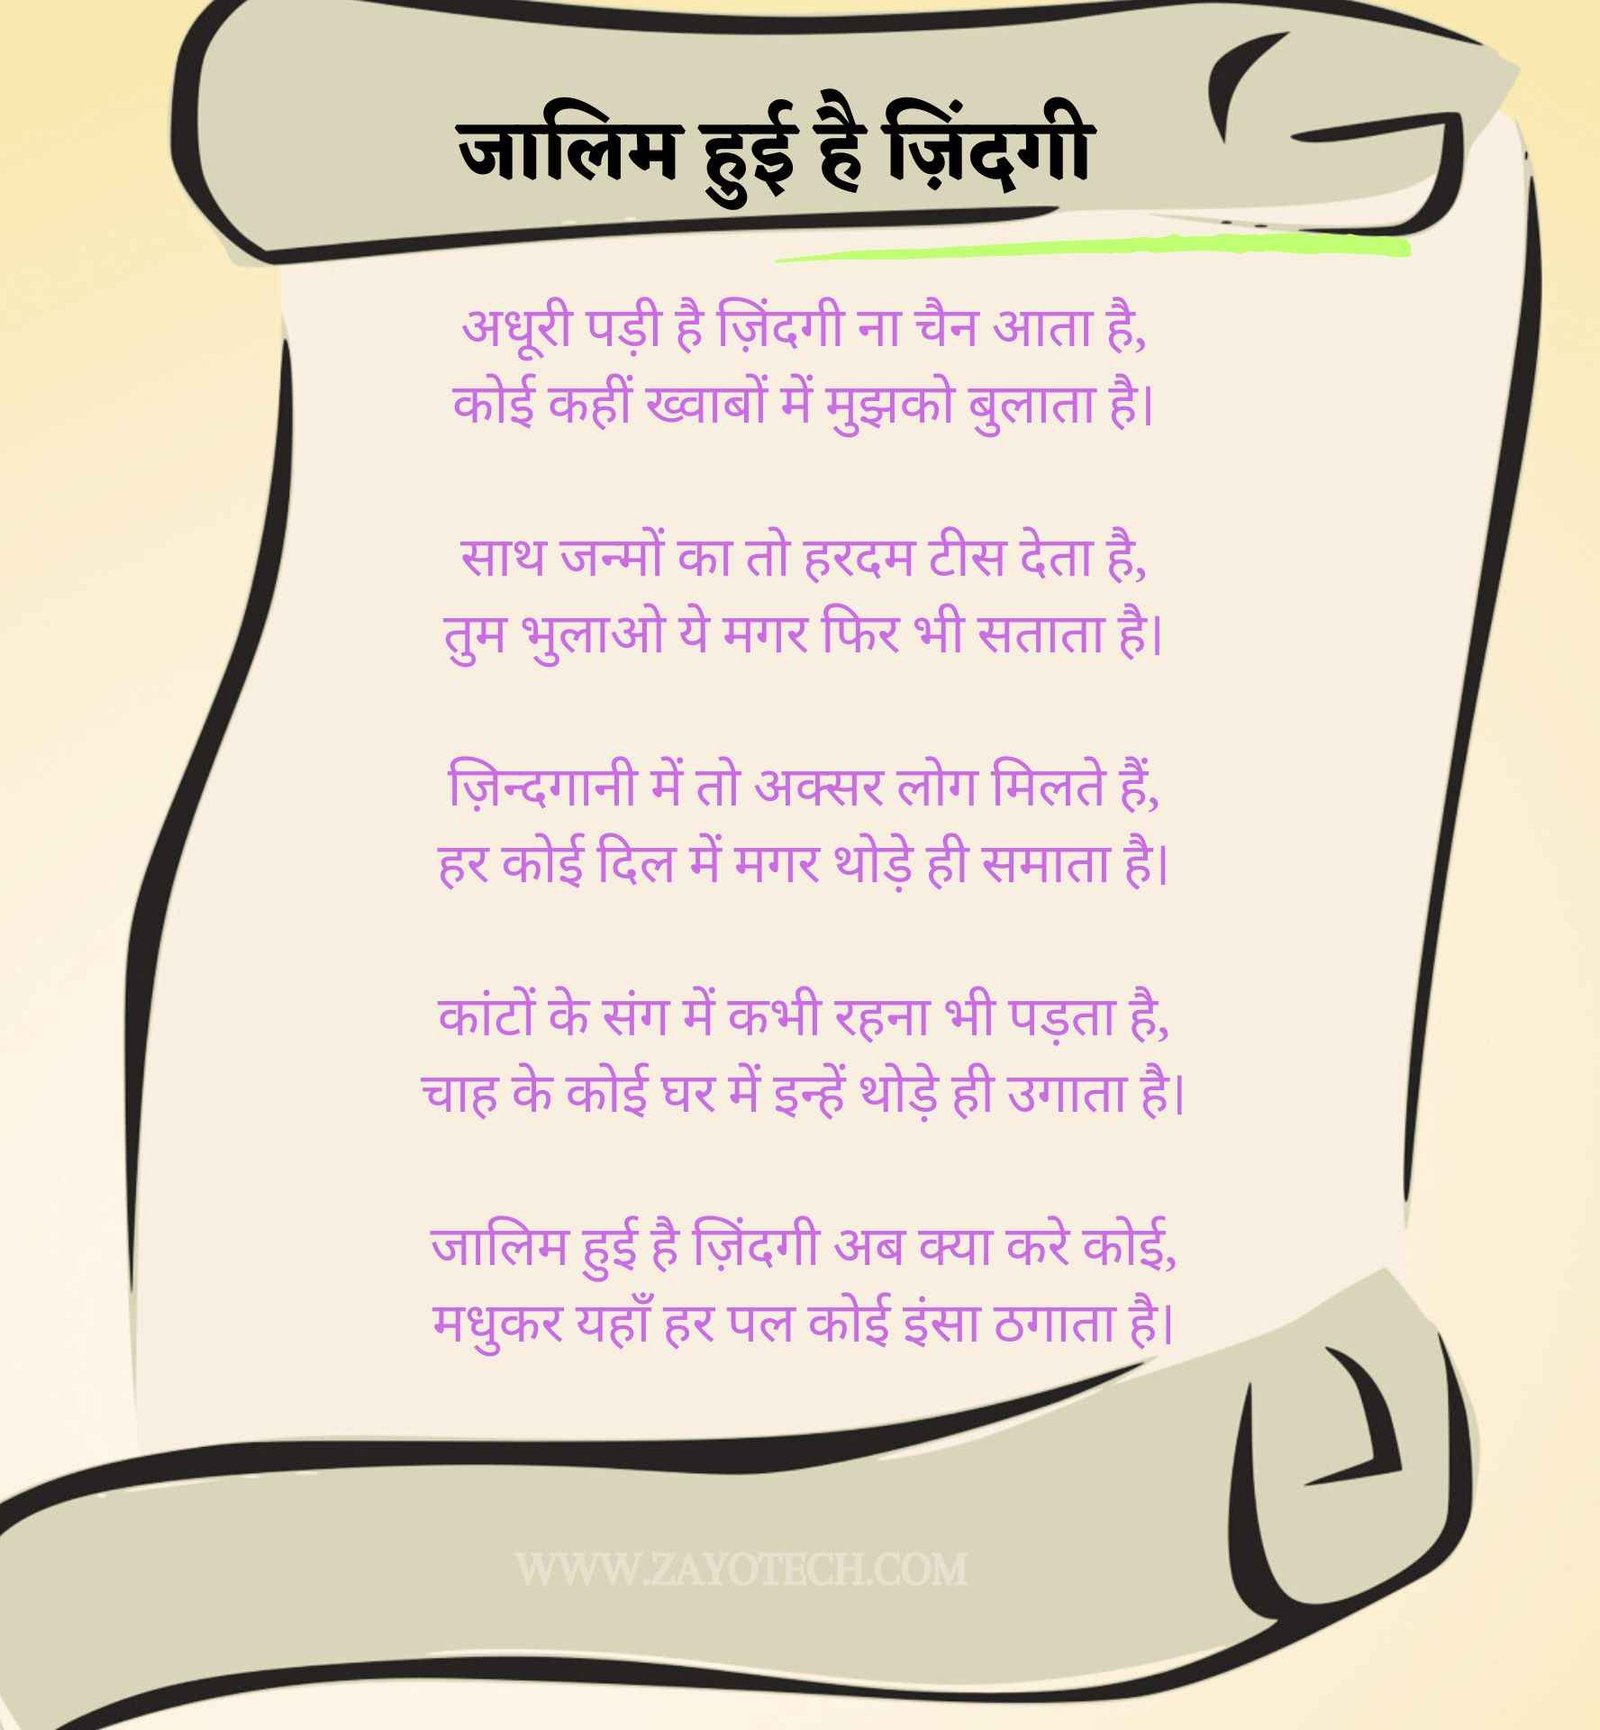 जालिम हुई है ज़िंदगी
अधूरी पड़ी है ज़िंदगी ना चैन आता है,
कोई कहीं ख्वाबों में मुझको बुलाता है।
साथ जन्मों का तो हरदम टीस देता है,
तुम भुलाओ ये मगर फिर भी सताता है।
ज़िन्दगानी में तो अक्सर लोग मिलते हैं,
हर कोई दिल में मगर थोड़े ही समाता है।
कांटों के संग में कभी रहना भी पड़ता है,
चाह के कोई घर में इन्हें थोड़े ही उगाता है।
जालिम हुई है ज़िंदगी अब क्या करे कोई,
मधुकर यहाँ हर पल कोई इंसा ठगाता है।
WWW.ZAYOTECH.COM